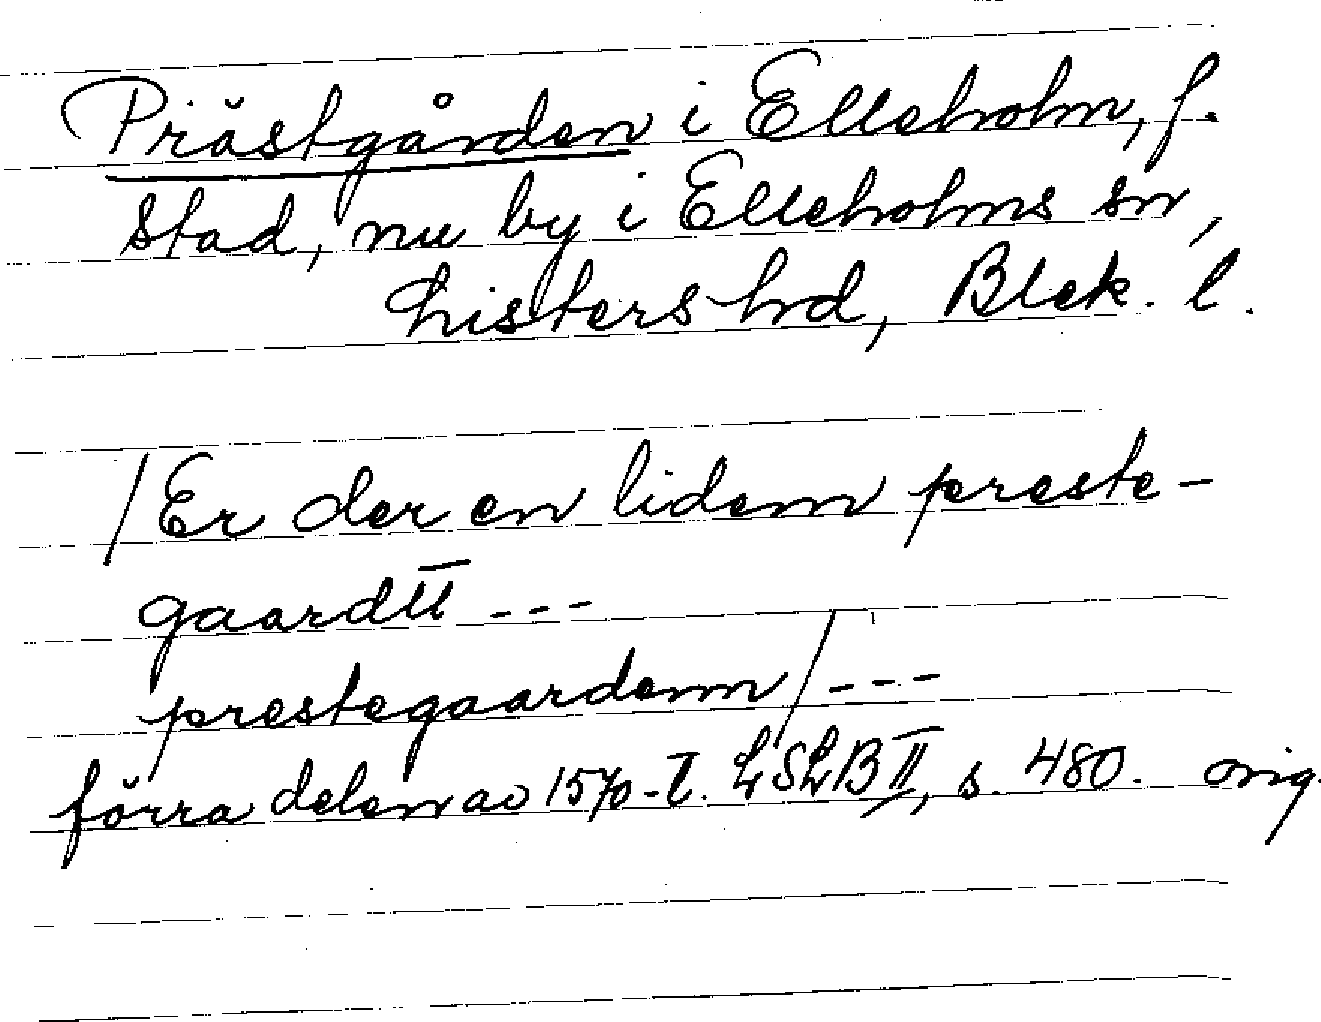 Prästgården i Elleholm, f.
stad, nu by i Elleholms sn,
Listers hd, Blek. l.
/Er der en lidenn preste-
gaardtt ---
prestegaardenn/ ---
förra delen av 1570-t. LSLB II, s. 480. orig.